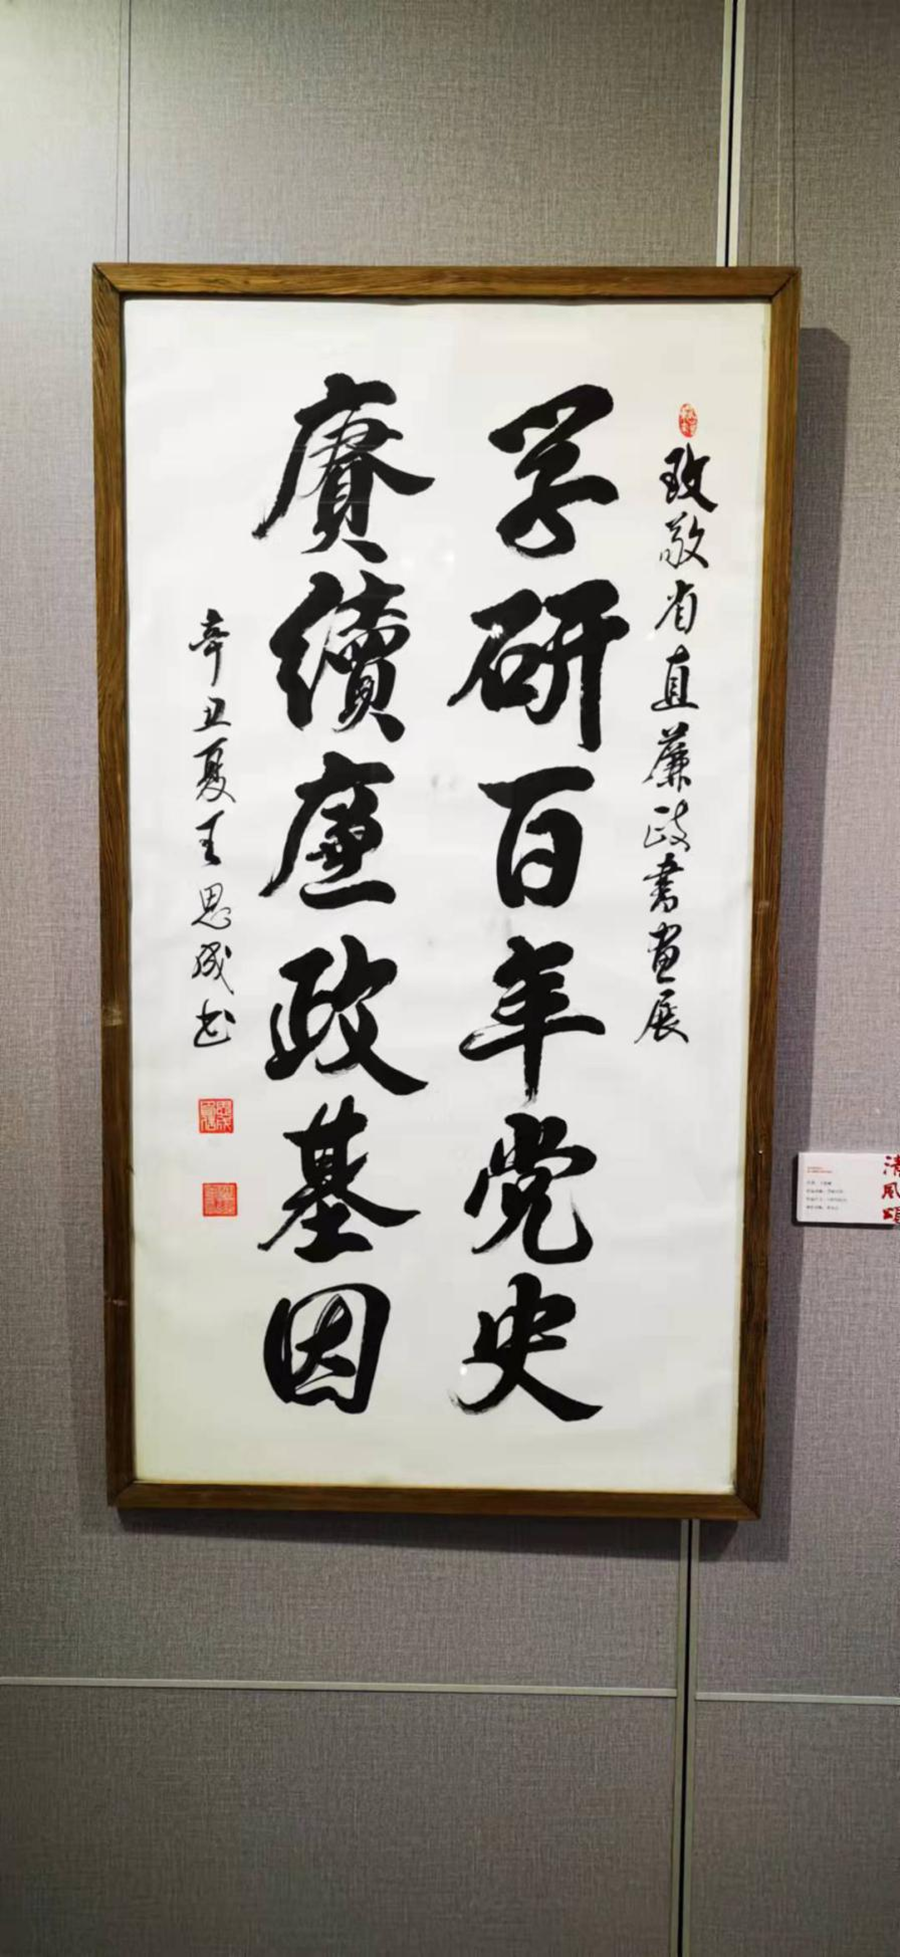 致敬省直廉政书画展
学研百年党史
赓續廉政基因
辛丑夏王思成书
清风颂